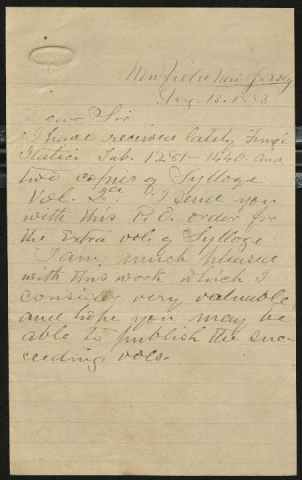 Newfield New Jersey
Aug. 18. 1883
Dear Sir
I have received lately Fungi
Italici Tab. 1281-1440. and
two copies of Sylloge
Vol. 2d. I send you
with this P.O. order for
the extra vol. of Sylloge.
I am much pleased
with this work which I
consider very valuable
and hope you may be
able to publish the suc-
ceeding vols.